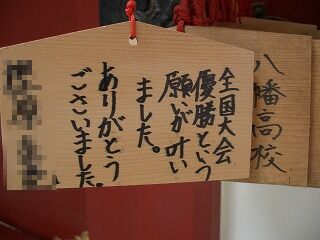 全国大会
優勝という
願いが叶い
ました。
ありがとう
ございました。
八幡高校